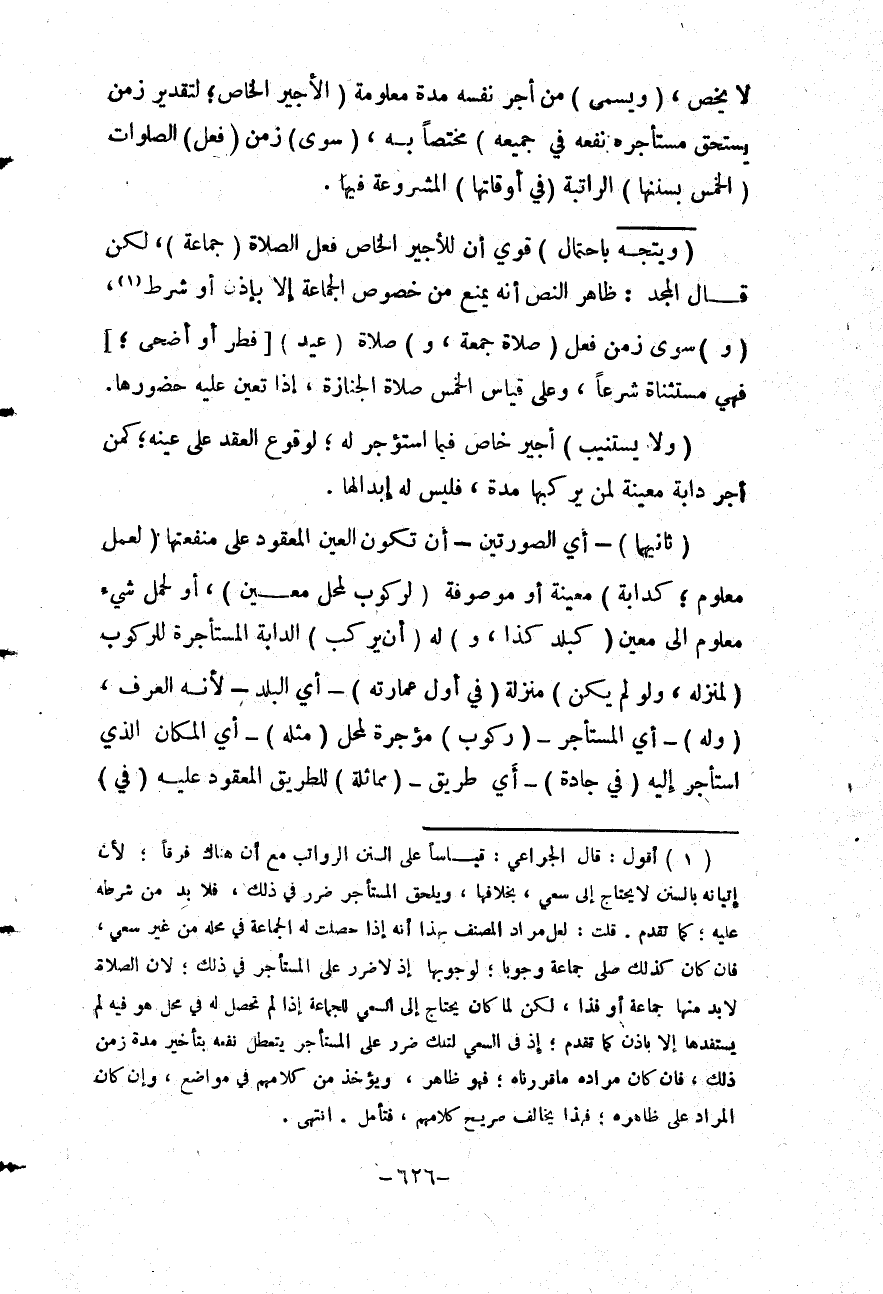 لا يخص ، ( ويسمى ) من أجر نفسه مدة معلومة ( الأجير الخاص ؛ لتقدير زمن
يستحق مستأجره نفعه في جميعه ) مختصاً بـه ، ( سوى ) زمن ( فعل ) الصلوات
( الخمس بسننها ) الراتبة ( في أوقاتها ) المشروعة فيها .
( ويتجـه باحتمال ) قوي أن للأجير الخاص فعل الصلاة ( جماعة ) ، لكن
قـال المجد : ظاهر النص أنه يمنع من خصوص الجماعة إلا بإذن أو شرط (١) ،
( و ) سوى زمن فعل ( صلاة جمعة ، و ) صلاة ( عيد ) [ فطر أو أضحى ؛ ]
فهي مستثناة شرعاً ، وعلى قياس الخمس صلاة الجنازة ، إذا تعين عليه حضورها.
( ولا يستنيب ) أجير خاص فيما استؤجر له ؛ لوقوع العقد على عينه ؛ كمن
أجر دابة معينة لمن يركبها مدة ، فليس له إبدالها .
( ثانيها ) – أي الصورتين – أن تكون العين المعقود على منفعتها ( لعمل
معلوم ؛ كدابة ) معينة أو موصوفة ( لركوب لمحل معـين ) ، أو لحمل شيء
معلوم الى معين ( كبلد كذا ، و ) له ( أن يركب ) الدابة المستأجرة للركوب
( لمنزله ، ولو لم يكن ) منزلة ( في أول عمارته ) – أي البلد – لأنـه العرف ،
( وله ) – أي المستأجر – ( ركوب ) مؤجرة لمحل ( مثله ) – أي المكان الذي
استأجر إليه ( في جادة ) – أي طريق – ( مماثلة ) للطريق المعقود عليـه ( في )
( ١ ) أقول : قال الجراعي : قيـاساً على السنن الرواتب مع أن هناك فرقاً ؛ لأن
إتيانه بالسنن لا يحتاج إلى سعي ، بخلافها ، ويلحق المستأجر ضرر في ذلك ، فلا بد من شرطه
عليه ؛ كما تقدم . قلت : لعل مراد المصنف بهذا أنه إذا حصلت له الجماعة في محله من غير سعي ،
فان كان كذلك صلى جماعة وجوبا ؛ لوجوبها إذ لاضرر على المستأجر في ذلك ؛ لان الصلاة
لابد منها جماعة أو فذا ، لكن لما كان يحتاج إلى السعي للجماعة إذا لم تحصل له في محل هو فيه لم
يستفدها إلا باذن كما تقدم ؛ إذ في السعي لتلك ضرر على المستأجر يتعطل نفعه بتأخير مدة زمن
ذلك ، فان كان مراده ماقررناه ؛ فهو ظاهر ، ويؤخذ من كلامهم في مواضع ، وإن كان
المراد على ظاهره ؛ فهذا يخالف صريح كلامهم ، فتأمل . انتهى .
–٦٢٦–